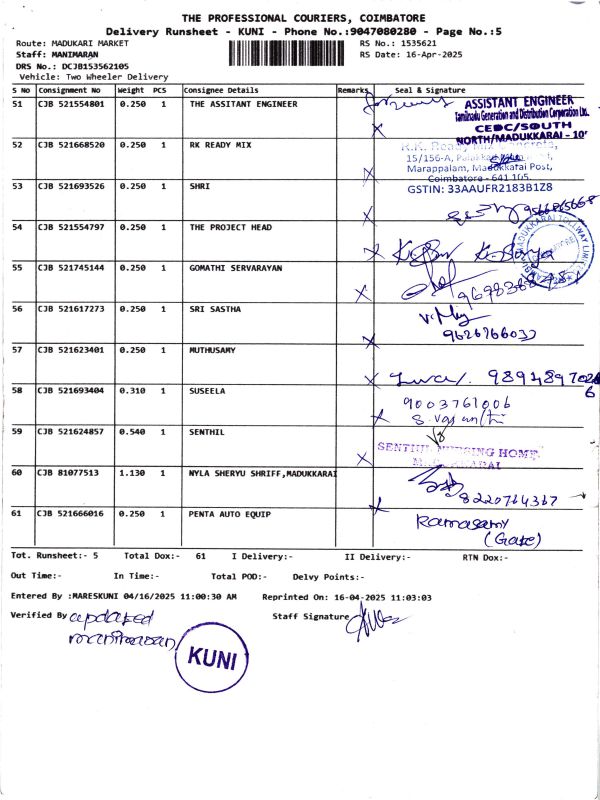 THE PROFESSIONAL COURIERS, COIMBATORE
Delivery Runsheet - KUNI - Phone No.:9047080280 - Page No.:5
Route: MADUKARI MARKET
RS No.: 1535621
Staff: MANIMARAN
RS Date: 16-Apr-2025
DRS No.: DCJB153562105
Vehicle: Two Wheeler Delivery
S No Consignment No Weight PCS Consignee Details Remarks Seal & Signature
51 CJB 521554801 0.250 1 THE ASSITANT ENGINEER
ASSISTANT ENGINEER
Tamilnadu Generation and Distribution Corporation Ltd.
CEDC/SOUTH
NORTH/MADUKKARAI - 10
52 CJB 521668520 0.250 1 RK READY MIX
R.K. Ready Mix Concrete,
15/156-A,
Marappalam, Madukkarai Post,
Coimbatore - 641 105.
GSTIN: 33AAUFR2183B1Z8
53 CJB 521693526 0.250 1 SHRI
9566865668
54 CJB 521554797 0.250 1 THE PROJECT HEAD
MADUKKARAI TOLLWAY LIMITED
55 CJB 521745144 0.250 1 GOMATHI SERVARAYAN
56 CJB 521617273 0.250 1 SRI SASTHA
9626766033
57 CJB 521623401 0.250 1 MUTHUSAMY
58 CJB 521693404 0.310 1 SUSEELA
9003761006
59 CJB 521624857 0.540 1 SENTHIL
SENTHIL NURSING HOME
60 CJB 81077513 1.130 1 NYLA SHERYU SHRIFF,MADUKKARAI
8220764367
61 CJB 521666016 0.250 1 PENTA AUTO EQUIP
Ramasamy
(Gate)
Tot. Runsheet:- 5 Total Dox:- 61 I Delivery:- II Delivery:- RTN Dox:-
Out Time:- In Time:- Total POD:- Delvy Points:-
Entered By :MARESKUNI 04/16/2025 11:00:30 AM Reprinted On: 16-04-2025 11:03:03
Verified By updated
manimaran
Staff Signature
KUNI